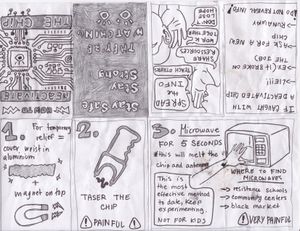 HOW TO
DEACTIVATE
THE CHIP
1.
For temporary
relief =
cover wrist in
aluminium
+
magnet on top
2.
TASER THE
CHIP
PAINFUL
3.
Microwave
FOR 5 SECONDS
this will melt the
chip and antenna
This is
the most
effective method
to date. Keep
experimenting.
NOT FOR KIDS
WHERE TO FIND
MICROWAVES
→ resistance schools
→ community centers
→ black market
VERY PAINFUL
IF CAUGHT WITH
A DEACTIVATED CHIP
LIE!!!
IT BROKE ON
THE JOB
ASK FOR A NEW
CHIP
RUN
DO NOT REVEAL INFO
SPREAD
THE
INFO
TEACH OTHERS
SHARE
RESOURCES
GROW TOGETHER
DON'T
LOSE
HOPE
Stay Safe
Stay Strong
THEY'RE
WATCHING